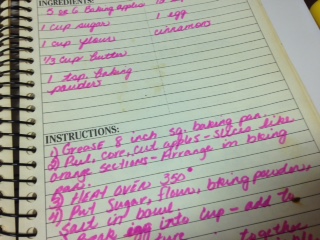 INGREDIENTS:
5 or 6 Baking apples
1 cup sugar
1 egg
1 cup flour
cinnamon
1/3 cup butter
1 tsp. baking
powder
INSTRUCTIONS:
1) Grease 8 inch sq. baking pan.
2) Peel, core, cut apples - slices like
orange sections - Arrange in baking
pan.
3) HEAT OVEN 350°
4) Put Sugar, flour, baking powder,
salt in bowl
Break egg into cup - add to
together